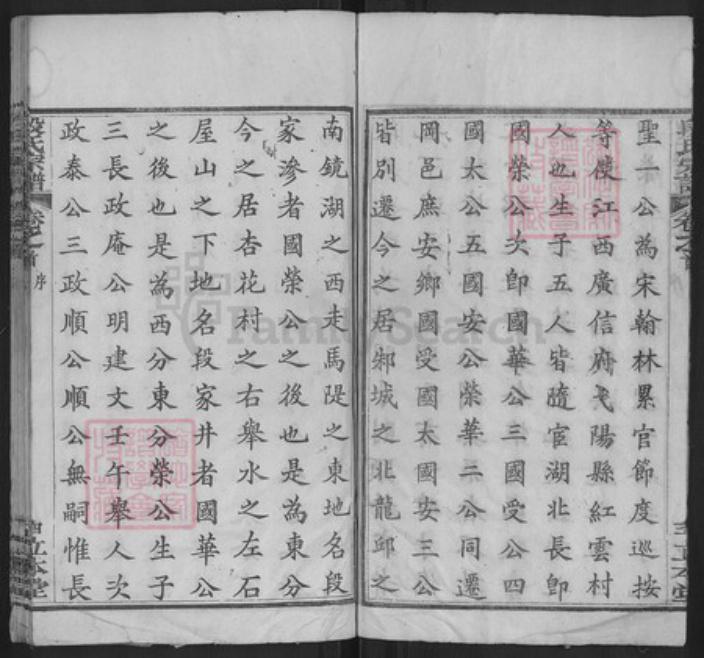 聖一公為宋翰林累官節度巡按
等使江西廣信府弋陽縣紅雲村
人也生子五人皆隨宦湖北長卽
國榮公次卽國華公三國受公四
國太公五國安公榮華二公同遷
岡邑庶安鄉國受國太國安三公
皆別遷今之居邾城之北龍邱之
南鏡湖之西走馬隄之東地名段
家滲者國榮公之後也是為東分
今之居杏花村之右舉水之左石
屋山之下地名段家井者國華公
之後也是為西分東分榮公生子
三長政庵公明建文壬午舉人次
政泰公三政順公順公無嗣惟長
段氏宗譜 卷之首 序
立本堂
FamilySearch